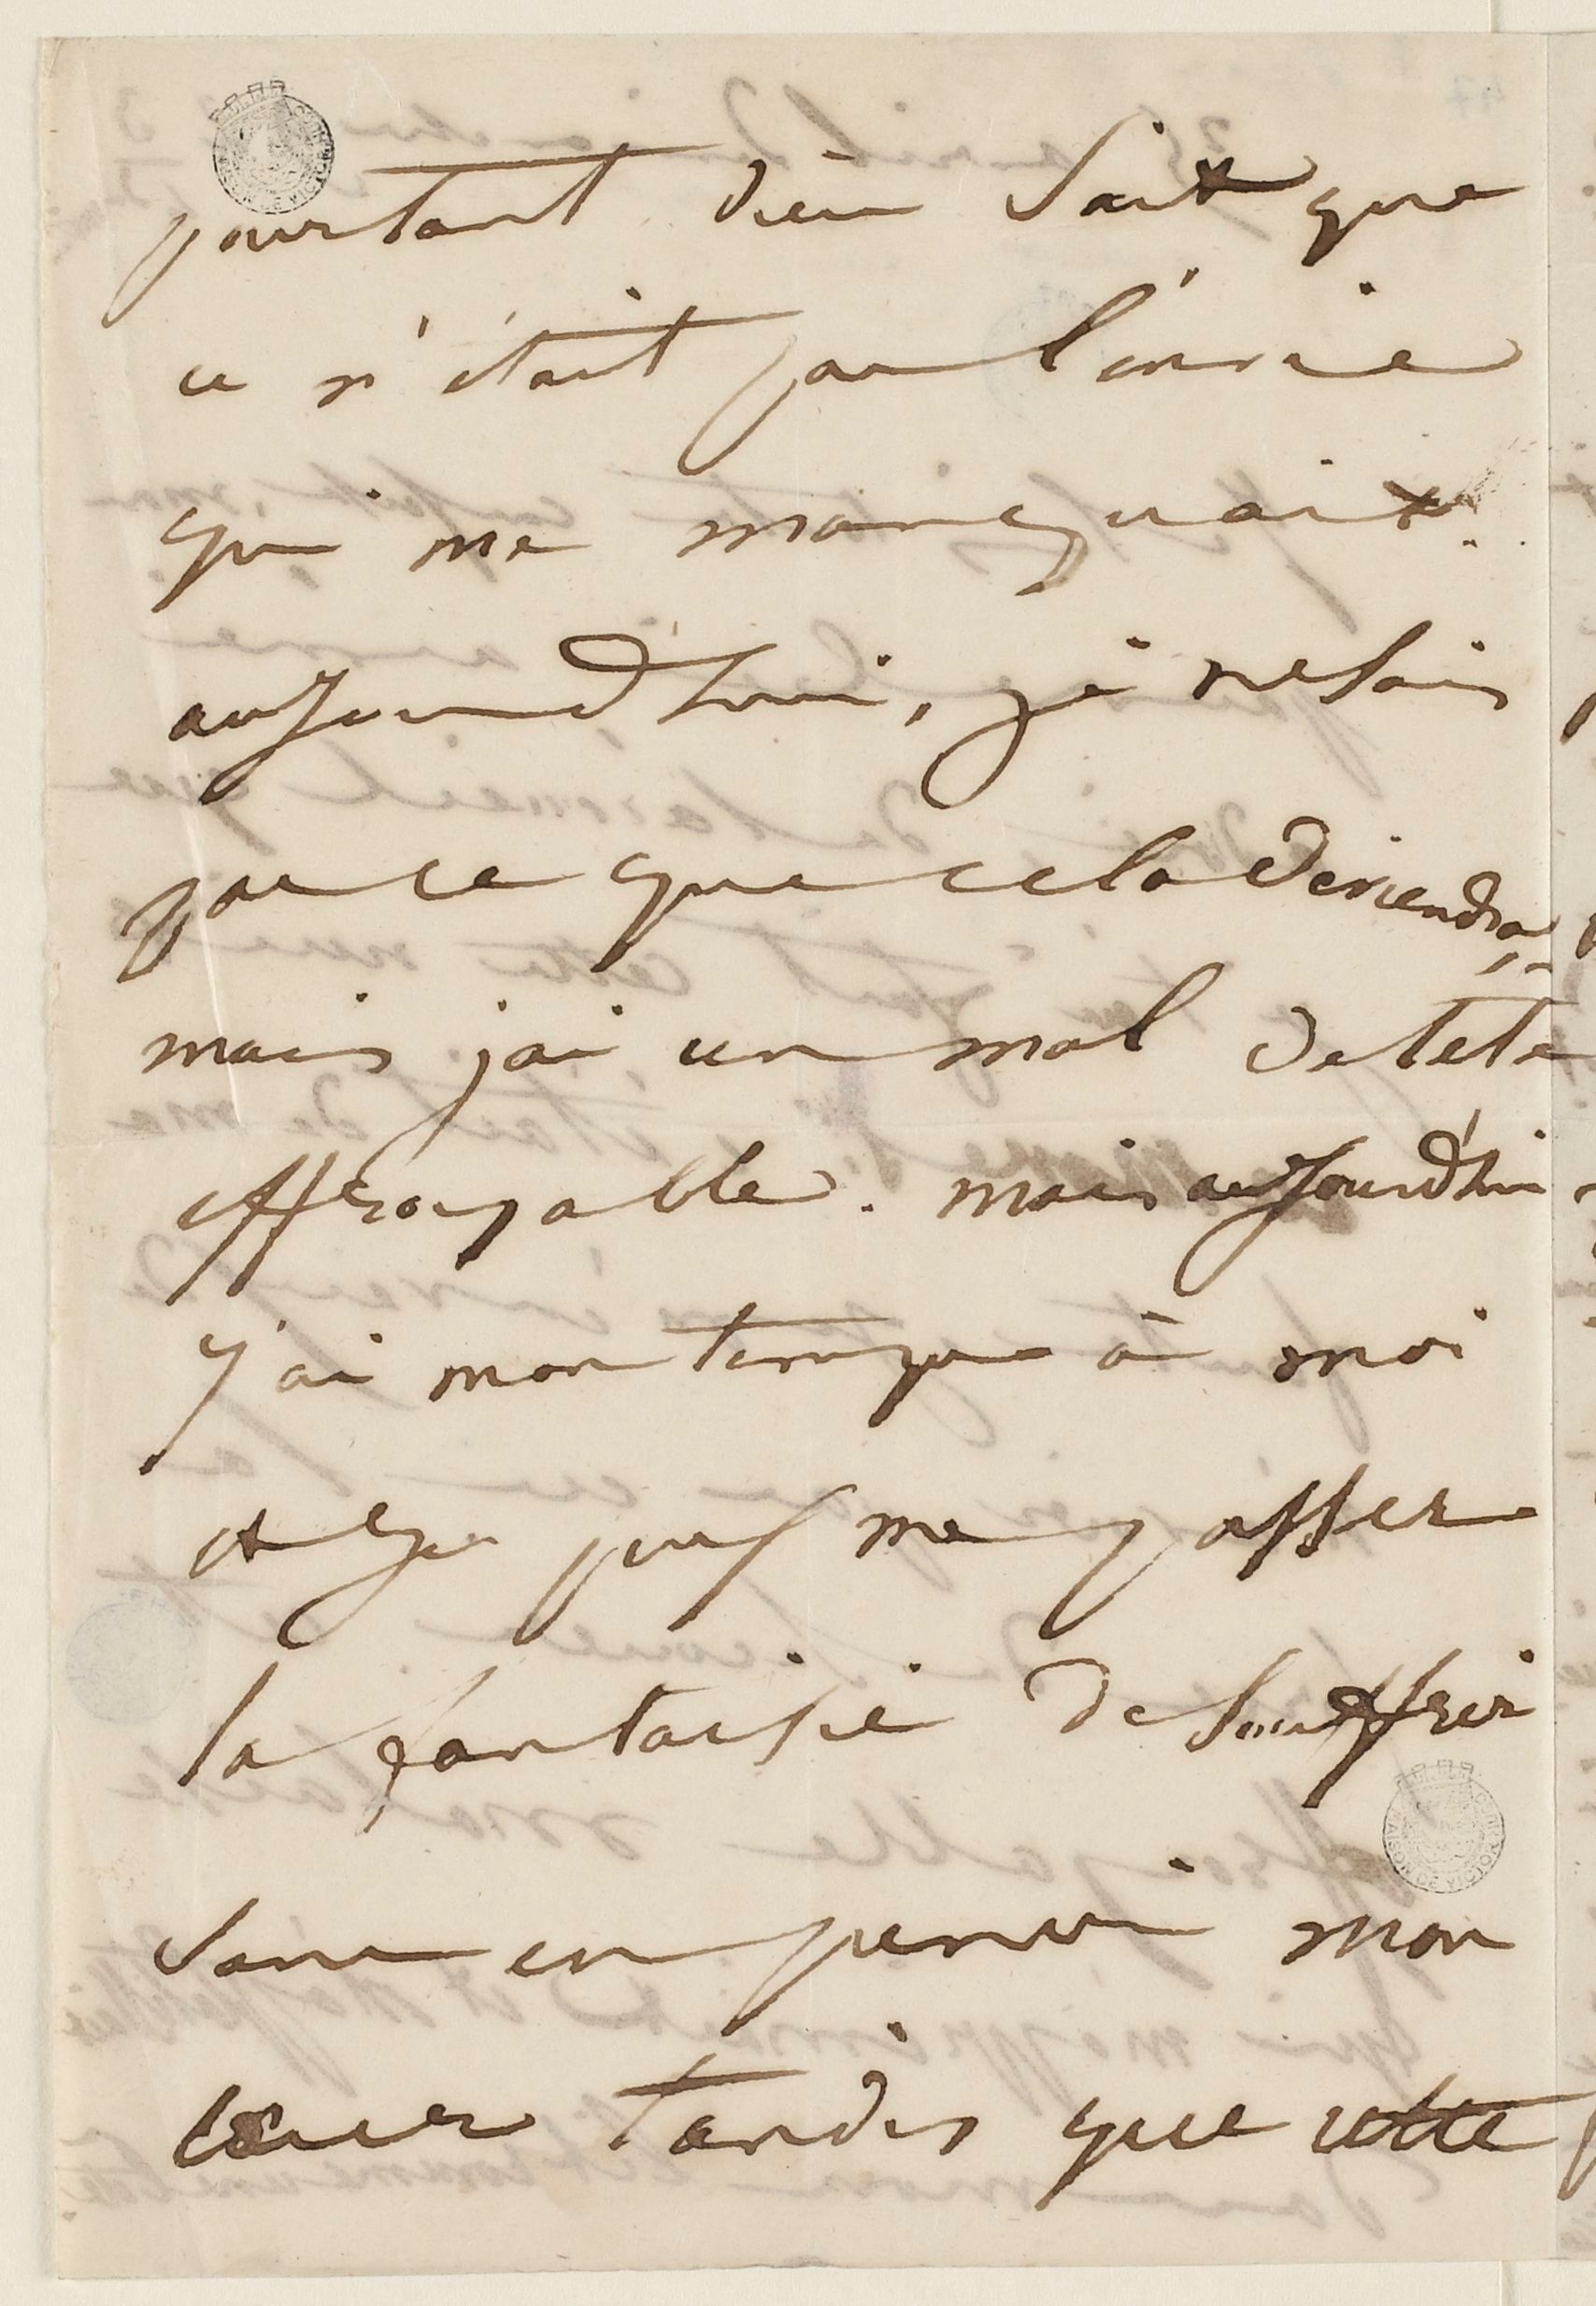 pourtant Dieu sait que
ce n'était pas l'envie
qui me manquait.
aujourd'hui, je ne sais
pas ce que cela deviendra,
mais j'ai un mal de tête
effroyable. mais aujourd'hui
j'ai mon temps à moi
et je puis me passer
la fantaisie de souffrir
sans en priver mon
cœur tandis que cette